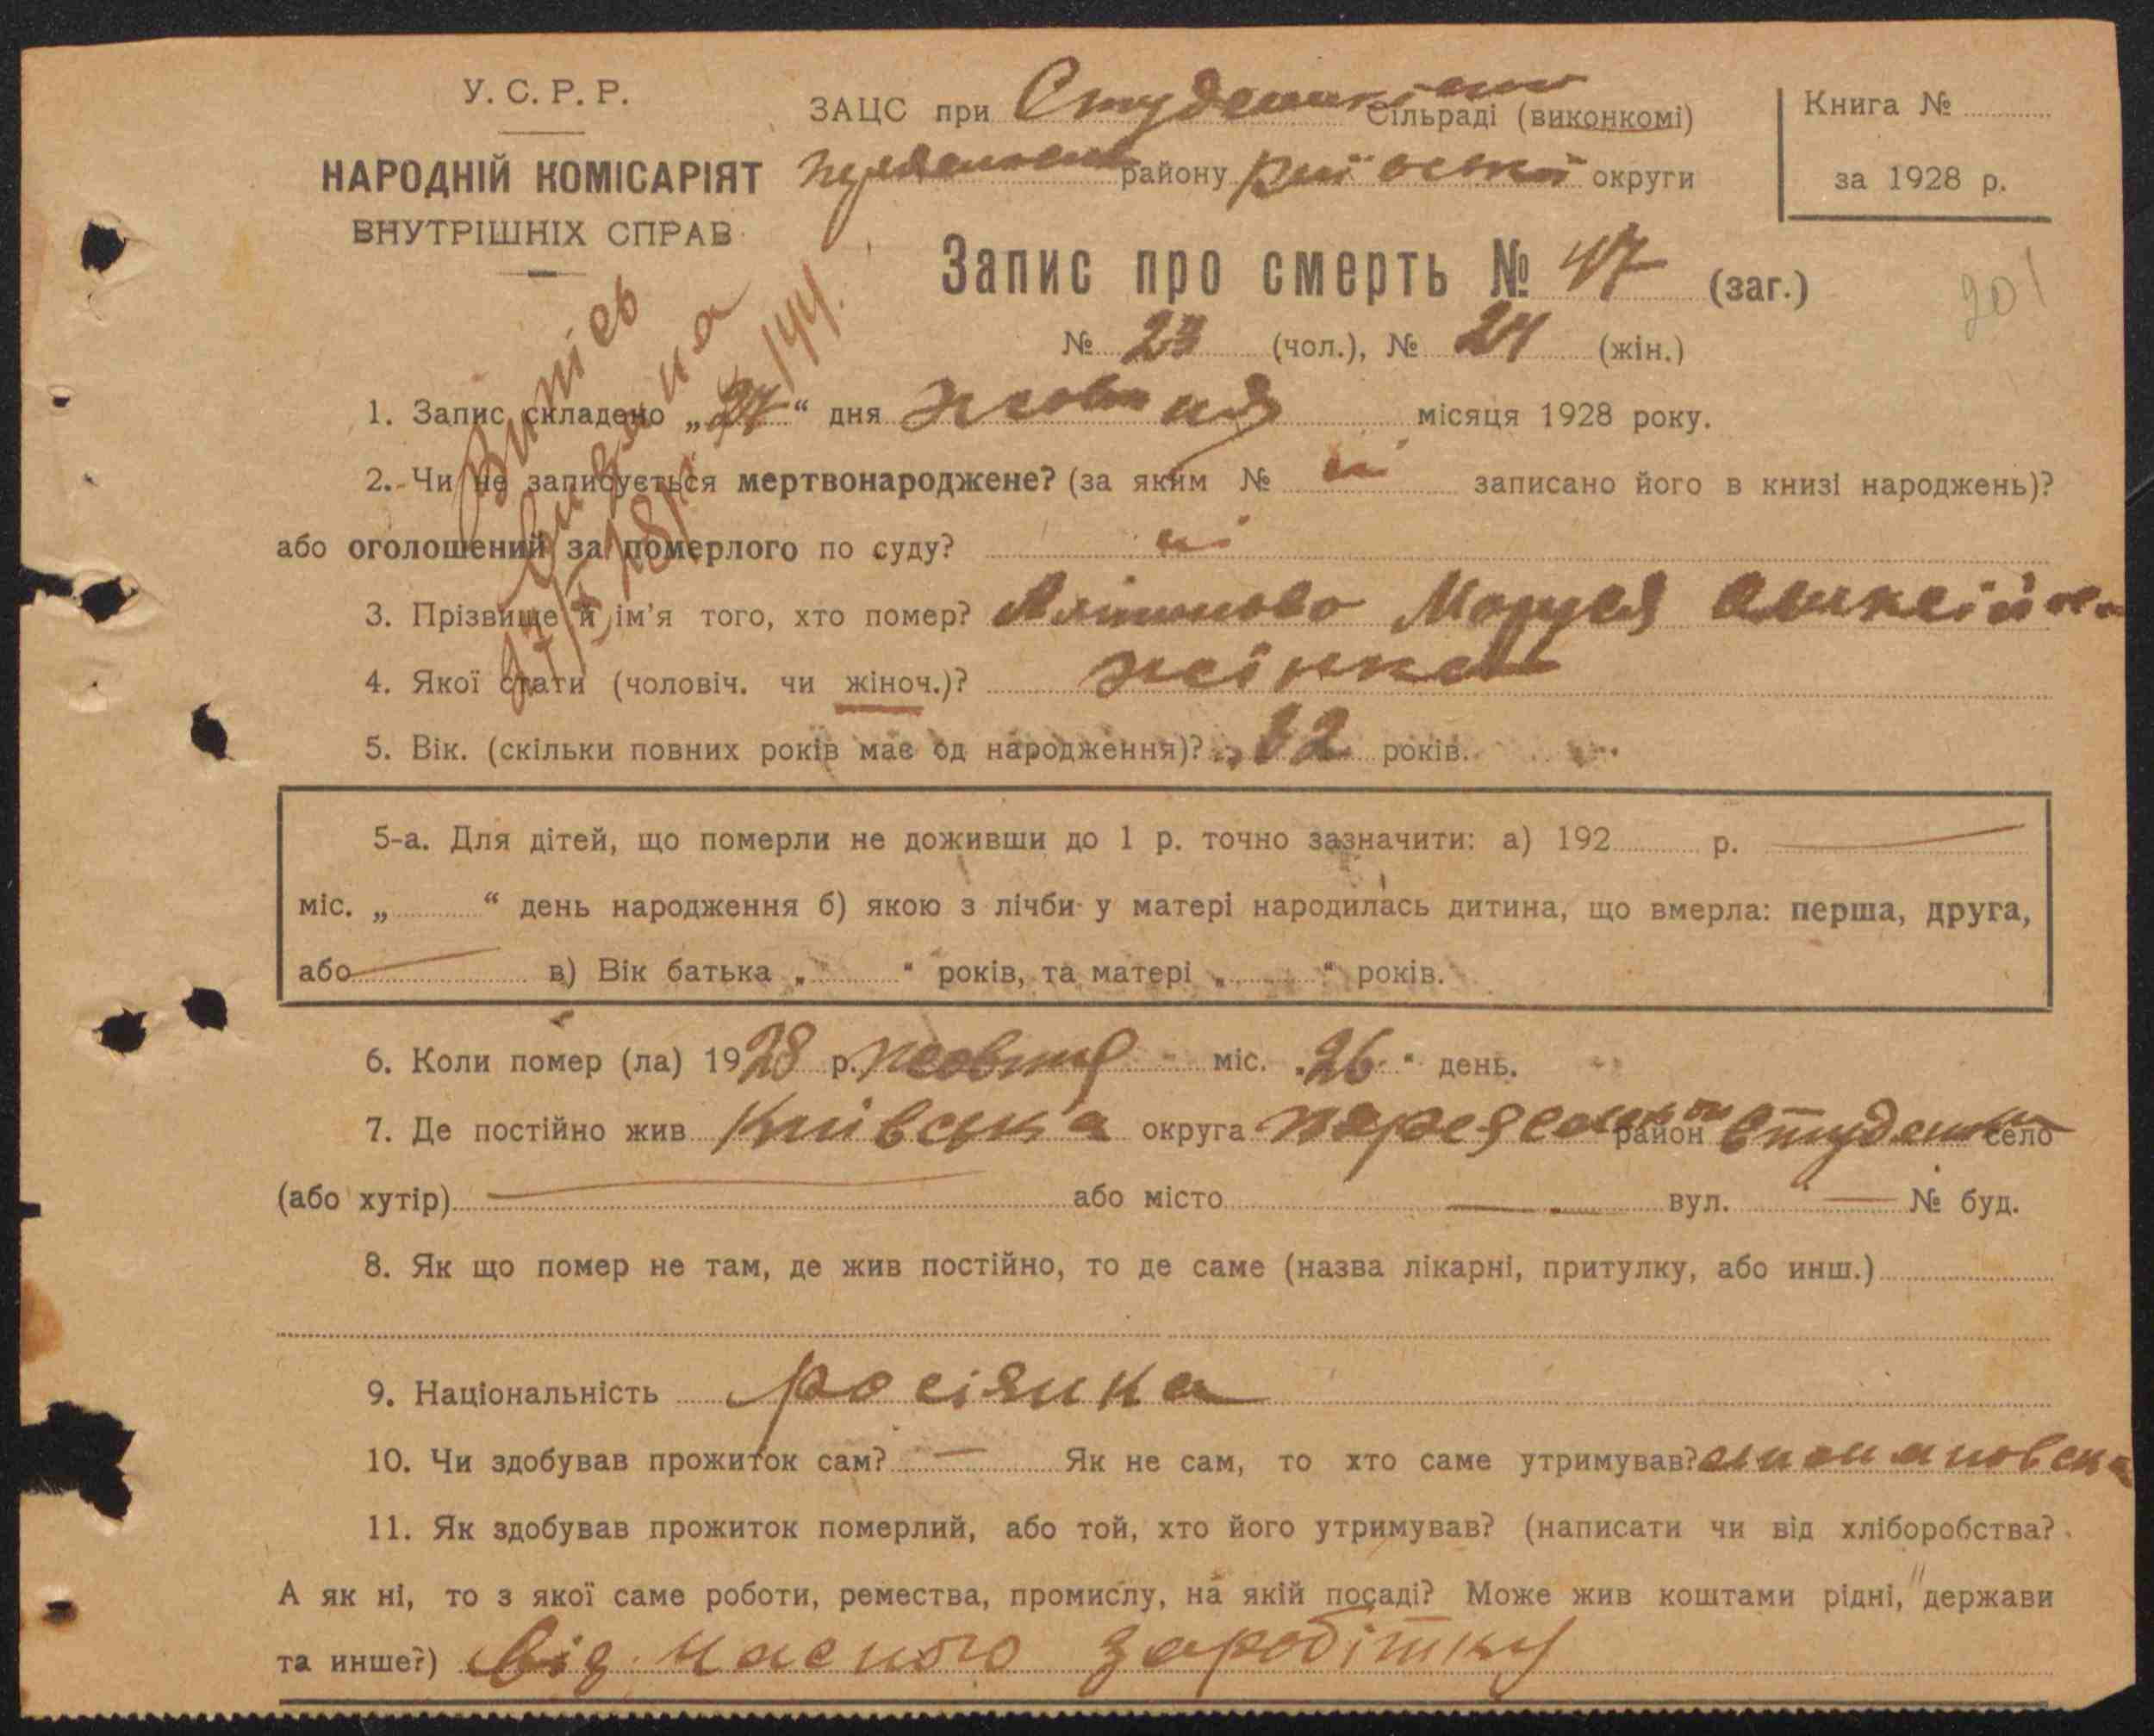 У. С. Р. Р.
НАРОДНІЙ КОМІСАРІЯТ
ВНУТРІШНІХ СПРАВ
ЗАЦС при Сільраді (виконкомі)
району округи
Книга №
за 1928 р.
Запис про смерть № 47 (заг.)
201
№ 23 (чол.), № 24 (жін.)
1. Запис складено „27“ дня жовтня місяця 1928 року.
2. Чи не записується мертвонароджене? (за яким № ні записано його в книзі народжень)?
або оголошений за померлого по суду? ні
3. Прізвище й ім'я того, хто помер? Маруся
4. Якої стати (чоловіч. чи жіноч.)? жінка
5. Вік. (скільки повних років має од народження)? 32 років.
5-а. Для дітей, що померли не доживши до 1 р. точно зазначити: а) 192 р.
міс. „ “ день народження б) якою з лічби у матері народилась дитина, що вмерла: перша, друга,
або в) Вік батька „ “ років, та матері „ “ років.
6. Коли помер (ла) 1928 р. жовтня міс. „26“ день.
7. Де постійно жив Київська округа район село
(або хутір) або місто вул. № буд.
8. Як що помер не там, де жив постійно, то де саме (назва лікарні, притулку, або инш.)
9. Національність росіянка
10. Чи здобував прожиток сам? — Як не сам, то хто саме утримував?
11. Як здобував прожиток померлий, або той, хто його утримував? (написати чи від хліборобства?
А як ні, то з якої саме роботи, ремества, промислу, на якій посаді? Може жив коштами рідні, держави
та инше?) Від заробітку